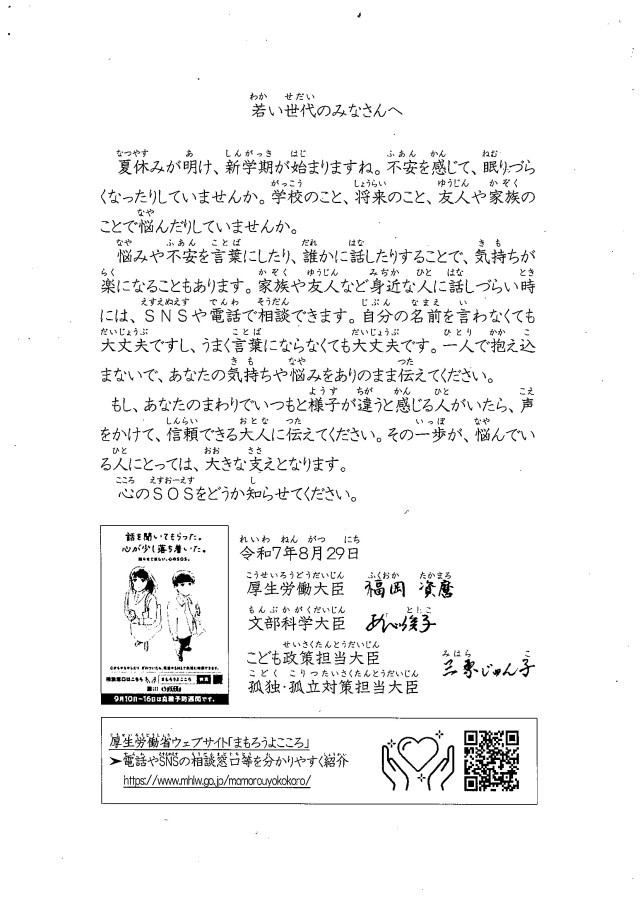 若い世代のみなさんへ
夏休みが明け、新学期が始まりますね。不安を感じて、眠りづら
くなったりしていませんか。学校のこと、将来のこと、友人や家族の
ことで悩んだりしていませんか。
悩みや不安を言葉にしたり、誰かに話したりすることで、気持ちが
楽になることもあります。家族や友人など身近な人に話しづらい時
には、SNSや電話で相談できます。自分の名前を言わなくても
大丈夫ですし、うまく言葉にならなくても大丈夫です。一人で抱え込
まないで、あなたの気持ちや悩みをありのまま伝えてください。
もし、あなたのまわりでいつもと様子が違うと感じる人がいたら、声
をかけて、信頼できる大人に伝えてください。その一歩が、悩んでい
る人にとっては、大きな支えとなります。
心のSOSをどうか知らせてください。
話を聞いてもらった。
心が少し落ち着いた。
相談窓口はこちら
まもろうよこころ
9月10日~16日は自殺予防週間です。
令和7年8月29日
厚生労働大臣 福岡 資麿
文部科学大臣 あべ俊子
こども政策担当大臣
孤独・孤立対策担当大臣
三原じゅん子
厚生労働省ウェブサイト「まもろうよこころ」
➤電話やSNSの相談窓口等を分かりやすく紹介
https://www.mhlw.go.jp/mamorouyokokoro/